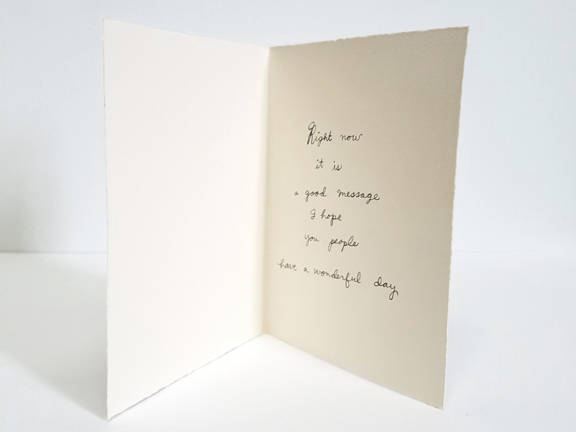 Right now
it is
a good message
I hope
you people
have a wonderful day